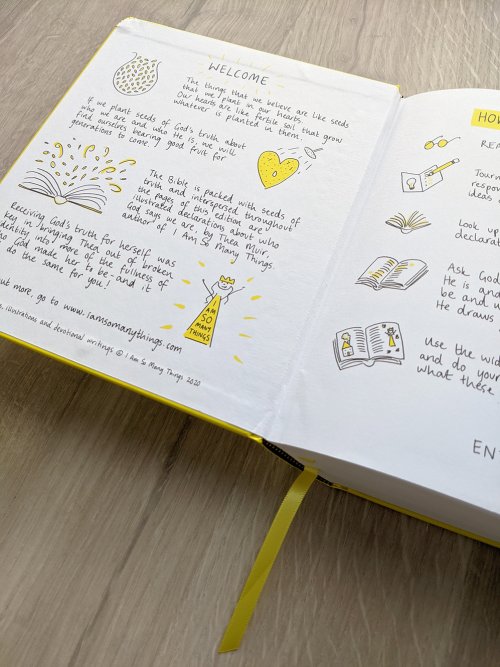 WELCOME
The things that we believe are like seeds
that we plant in our hearts.
Our hearts are like fertile soil that grow
whatever is planted in them.
If we plant seeds of God's truth about
who we are and who He is, we will
find ourselves bearing good fruit for
generations to come.
The Bible is packed with seeds of
truth and interspersed throughout
the pages of this edition are
illustrated declarations about who
God says we are, by Thea Muir,
author of I Am So Many Things.
Receiving God's truth for herself was
key in bringing Thea out of broken
identity into more of the fullness of
who God made her to be - and it
do the same for you!
out more, go to www.iamsomanything.com
illustrations and devotional writings © I Am So Many Things 2020
I
AM
SO
MANY
THINGS
HOW
REA
Journ
respon
ideas
Look up
declarat
Ask God
He is an
be and w
He draws
Use the wid
and do your
what these
EN